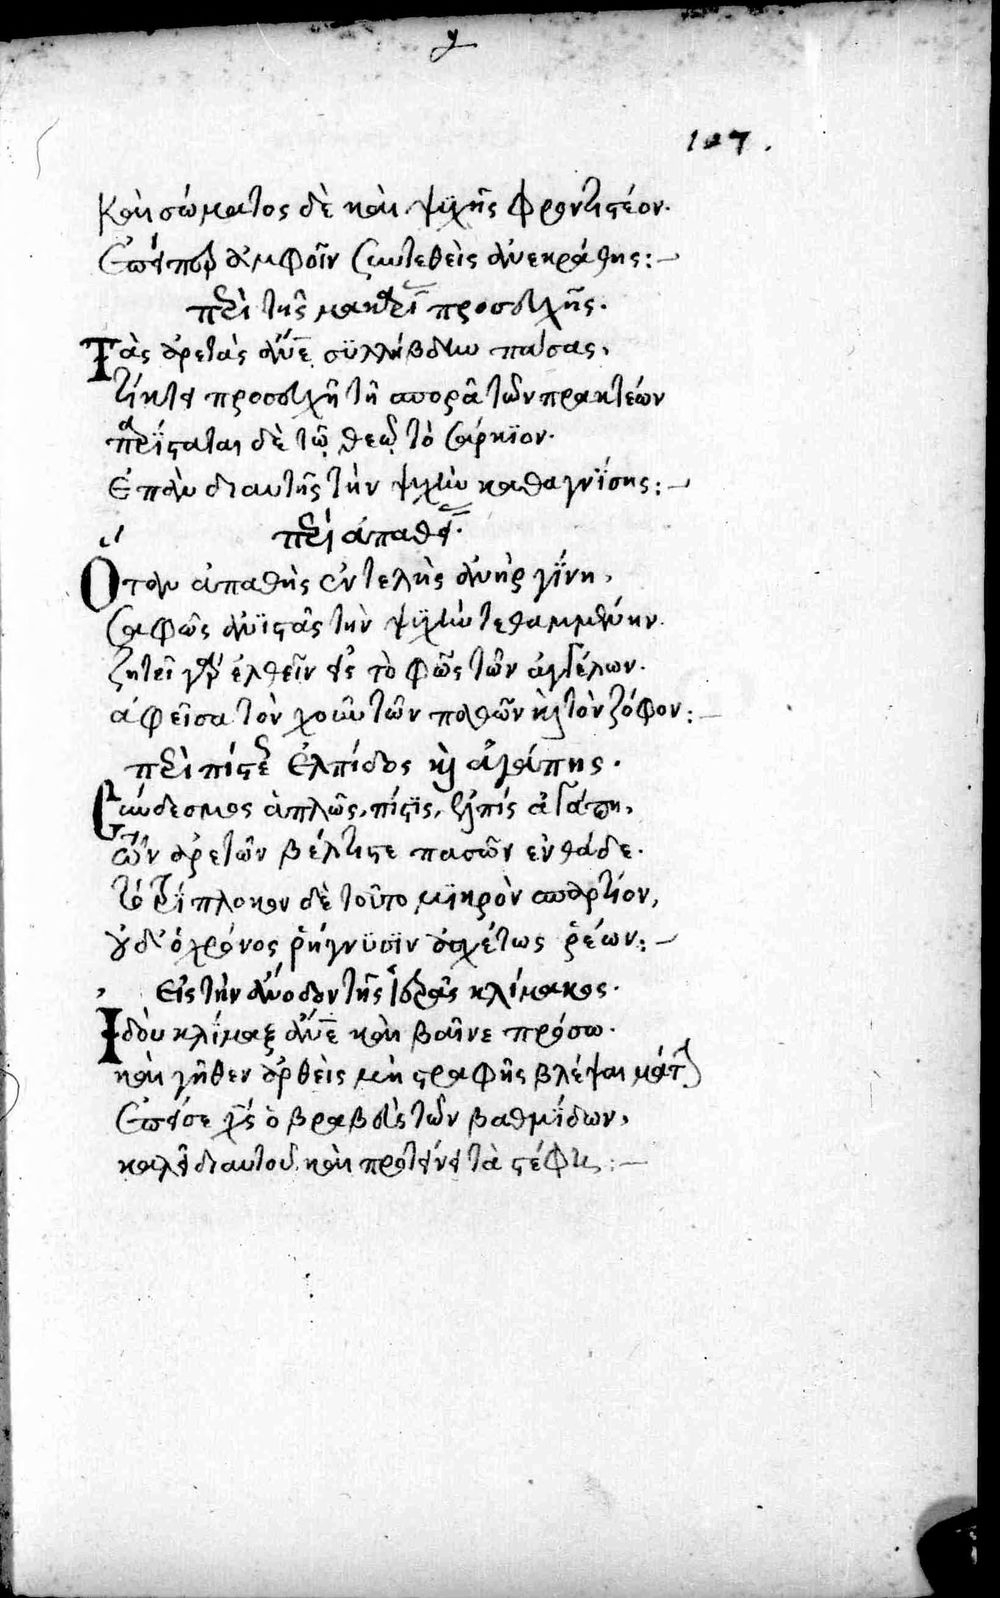 107.
Καὶ σώματος δὲ καὶ ψϋχῆς φροντιστέον.
Ἐπείπερ ἀμφοῖν συντεθεὶς ἀνεκράθης:~
περὶ τῆς μακαρί προσευχῆς.
Τὰς ἀρετὰς ἄνε συλλήβδην πάσας,
τίκτει προσευχὴ τῆ σπορᾶ τῶν πρακτέων
παρΐσταται δὲ τῷ θεῷ τὸ σαρκϊον.
Ἐπὰν δι αυτῆς τὴν ψυχὴν καθαγνΐσης:~
περὶ ἀπαθεί.
Ὅταν ἀπαθὴς ἐντελὴς ἀνὴρ γΐνη,
Σαφῶς ἀνϊστᾶς τὴν ψϋχὴν τεθαμμένην.
ζητεῖ γὰρ ἐλθεῖν εἰς τὸ φῶς τῶν ἀγγέλων.
ἀφεῖσα τὸν χοῦν τῶν παθῶν καὶ τὸν ζόφον:~
περὶ πίστε ἐλπίδος καὶ ἀγάπης.
Σύνδεσμος ἁπλῶς, πίστϊς, ἐλπίς ἀγάπη,
ὧν ἀρετῶν βέλτιστε πασῶν ἐνθάδε.
τὸ τρίπλοκον δὲ τοῦτο μϊκρὸν σπαρτίον,
οὐδ' ὁ χρόνος ῥήγνϋσϊν ἀσχέτως ῥέων:~
Εἰς τὴν ἄνοδον τῆς ἱερᾶς κλίμακος.
Ἰδοὺ κλΐμαξ ἄνε καὶ βαῖνε πρόσω.
καὶ γῆθεν ἀρθεὶς μὴ στραφῆς βλέψαι μάτ
Ἐπεί σε χς ὁ βραβεὺς τῶν βαθμΐδων,
καλεῖ δι αυτοῦ καὶ προτείνει τὰ στέφη:~